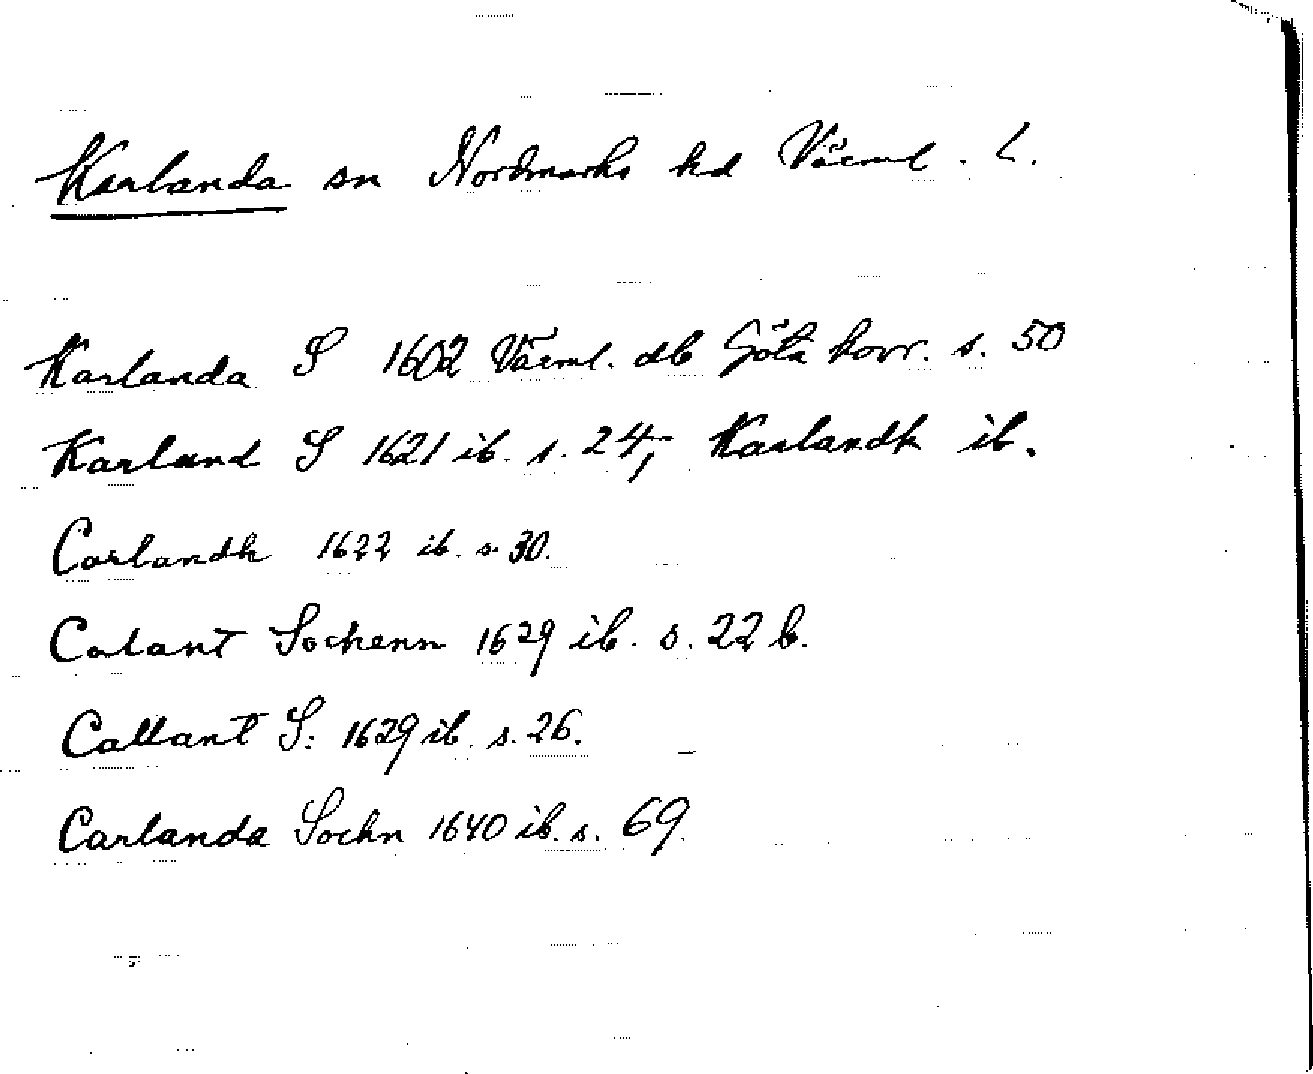 Karlanda sn Nordmarks hd Värml. L.
Karlanda S 1602 Värml. db Göta hovr. s. 50
Karland S 1621 ib. s. 24; Karlandh ib.
Carlandh 1622 ib. s. 30.
Calant Sochenn 1629 ib. s. 22 b.
Callant S: 1629 ib. s. 26.
Carlanda Sochn 1640 ib. s. 69.